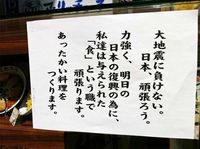 大地震に負けない。
日本、頑張ろう。
力強く、明日の
日本の復興の為に、
私達は与えられた
「食」という職で
頑張ります。
あったかい料理を
つくります。